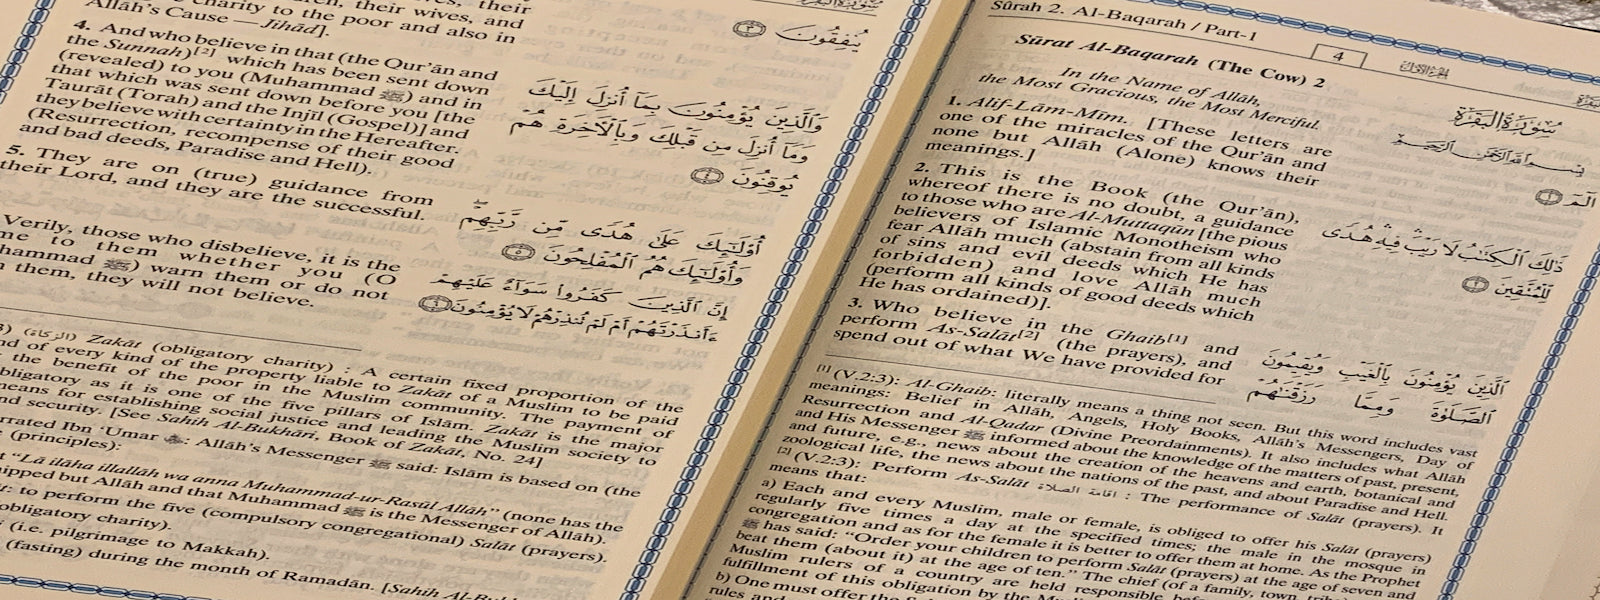 Sûrah 2. Al-Baqarah / Part-1
4
Sûrat Al-Baqarah (The Cow) 2
In the Name of Allâh,
the Most Gracious, the Most Merciful.
سُورَةُ البَقَرَةِ
1. Alif-Lâm-Mîm. [These letters are
one of the miracles of the Qur'ân and
none but Allâh (Alone) knows their
meanings.]
2. This is the Book (the Qur'ân),
whereof there is no doubt, a guidance
to those who are Al-Muttaqûn [the pious
believers of Islamic Monotheism who
fear Allâh much (abstain from all kinds
of sins and evil deeds which He has
forbidden) and love Allâh much
(perform all kinds of good deeds which
He has ordained)].
ذَٰلِكَ ٱلْكِتَٰبُ لَا رَيْبَ فِيهِ هُدًى
لِّلْمُتَّقِينَ ٢
3. Who believe in the Ghaib[1] and
perform As-Salât[2] (the prayers), and
spend out of what We have provided for
ٱلَّذِينَ يُؤْمِنُونَ بِٱلْغَيْبِ وَيُقِيمُونَ
ٱلصَّلَوٰةَ وَمِمَّا رَزَقْنَٰهُمْ
[1] (V.2:3): Al-Ghaib: literally means a thing not seen. But this word includes vast
meanings: Belief in Allâh, Angels, Holy Books, Allâh's Messengers, Day of
Resurrection and Al-Qadar (Divine Preordainments). It also includes what Allâh
and His Messenger ﷺ informed about the knowledge of the matters of past, present,
and future, e.g., news about the creation of the heavens and earth, botanical and
zoological life, the news about the nations of the past, and about Paradise and Hell.
[2] (V.2:3): Perform As-Salât اقامة الصلاة : The performance of Salât (prayers). It
means that:
a) Each and every Muslim, male or female, is obliged to offer his Salât (prayers)
regularly five times a day at the specified times; the male in the mosque in
congregation and as for the female it is better to offer them at home. As the Prophet
ﷺ has said: "Order your children to perform Salât (prayers) at the age of seven and
beat them (about it) at the age of ten." The chief (of a family, town,
Muslim rulers of a country are held responsible
fulfillment of this obligation by the
b) One must offer the
rules and
their wives, and
charity to the poor and also in
Allâh's Cause — Jihâd].
يُنفِقُونَ ٣
4. And who believe in that (the Qur'ân and
the Sunnah)[2] which has been sent down
(revealed) to you (Muhammad ﷺ) and in
that which was sent down before you [the
Taurât (Torah) and the Injîl (Gospel)] and
they believe with certainty in the Hereafter.
(Resurrection, recompense of their good
and bad deeds, Paradise and Hell).
وَٱلَّذِينَ يُؤْمِنُونَ بِمَآ أُنزِلَ إِلَيْكَ
وَمَآ أُنزِلَ مِن قَبْلِكَ وَبِٱلْءَاخِرَةِ هُمْ
يُوقِنُونَ ٤
5. They are on (true) guidance from
their Lord, and they are the successful.
أُو۟لَٰٓئِكَ عَلَىٰ هُدًى مِّن رَّبِّهِمْ
وَأُو۟لَٰٓئِكَ هُمُ ٱلْمُفْلِحُونَ ٥
Verily, those who disbelieve, it is the
me to them whether you (O
hammad ﷺ) warn them or do not
n them, they will not believe.
إِنَّ ٱلَّذِينَ كَفَرُوا۟ سَوَآءٌ عَلَيْهِمْ
ءَأَنذَرْتَهُمْ أَمْ لَمْ تُنذِرْهُمْ لَا يُؤْمِنُونَ ٦
3) (الزكاة) Zakât (obligatory charity) : A certain fixed proportion of the
nd of every kind of the property liable to Zakât of a Muslim to be paid
the benefit of the poor in the Muslim community. The payment of
bligatory as it is one of the five pillars of Islâm. Zakât is the major
means for establishing social justice and leading the Muslim society to
nd security. [See Sahih Al-Bukhâri, Book of Zakât, No. 24]
rrated Ibn 'Umar : Allâh's Messenger ﷺ said: Islâm is based on (the
(principles):
"Lâ ilâha illallâh wa anna Muhammad-ur-Rasûl Allâh" (none has the
ipped but Allâh and that Muhammad ﷺ is the Messenger of Allâh).
t: to perform the five (compulsory congregational) Salât (prayers).
obligatory charity).
(i.e. pilgrimage to Makkah).
(fasting) during the month of Ramadân. [Sahih